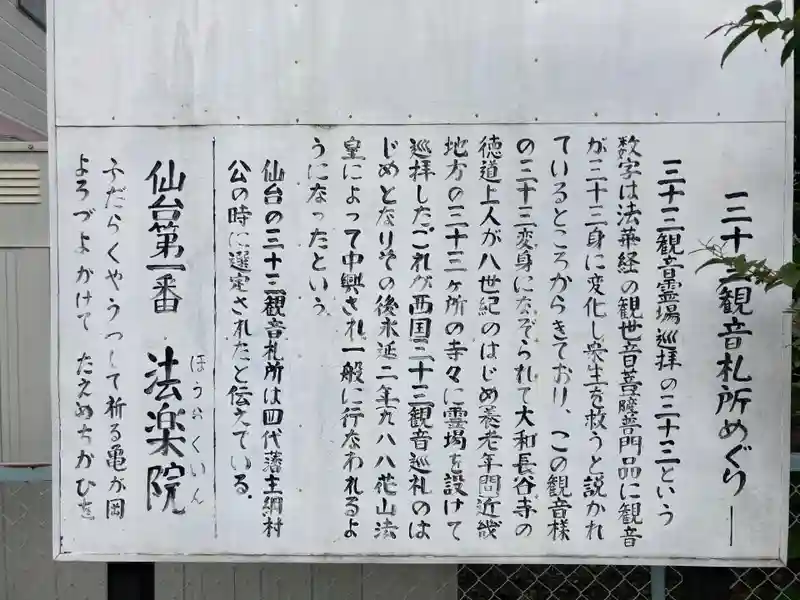 三十三観音札所めぐり―
三十三観音霊場巡拝の三十三という
数字は法華経の観世音菩薩普門品に観音
が三十三身に変化し衆生を救うと説かれ
ているところからきており、この観音様
の三十三変身になぞられて大和長谷寺の
徳道上人が八世紀のはじめ養老年間近畿
地方の三十三ヶ所の寺々に霊場を設けて
巡拝したこれが西国三十三観音巡礼のは
じめとなりその後永延二年九八八花山法
皇によって中興され一般に行なわれるよ
うになったという。
仙台の三十三観音札所は四代藩主綱村
公の時に選定されたと伝えている。
仙台第一番 法楽院
ほうらくいん
ふだらくやうつして祈る亀が岡
よろづよかけて たえぬちかひを